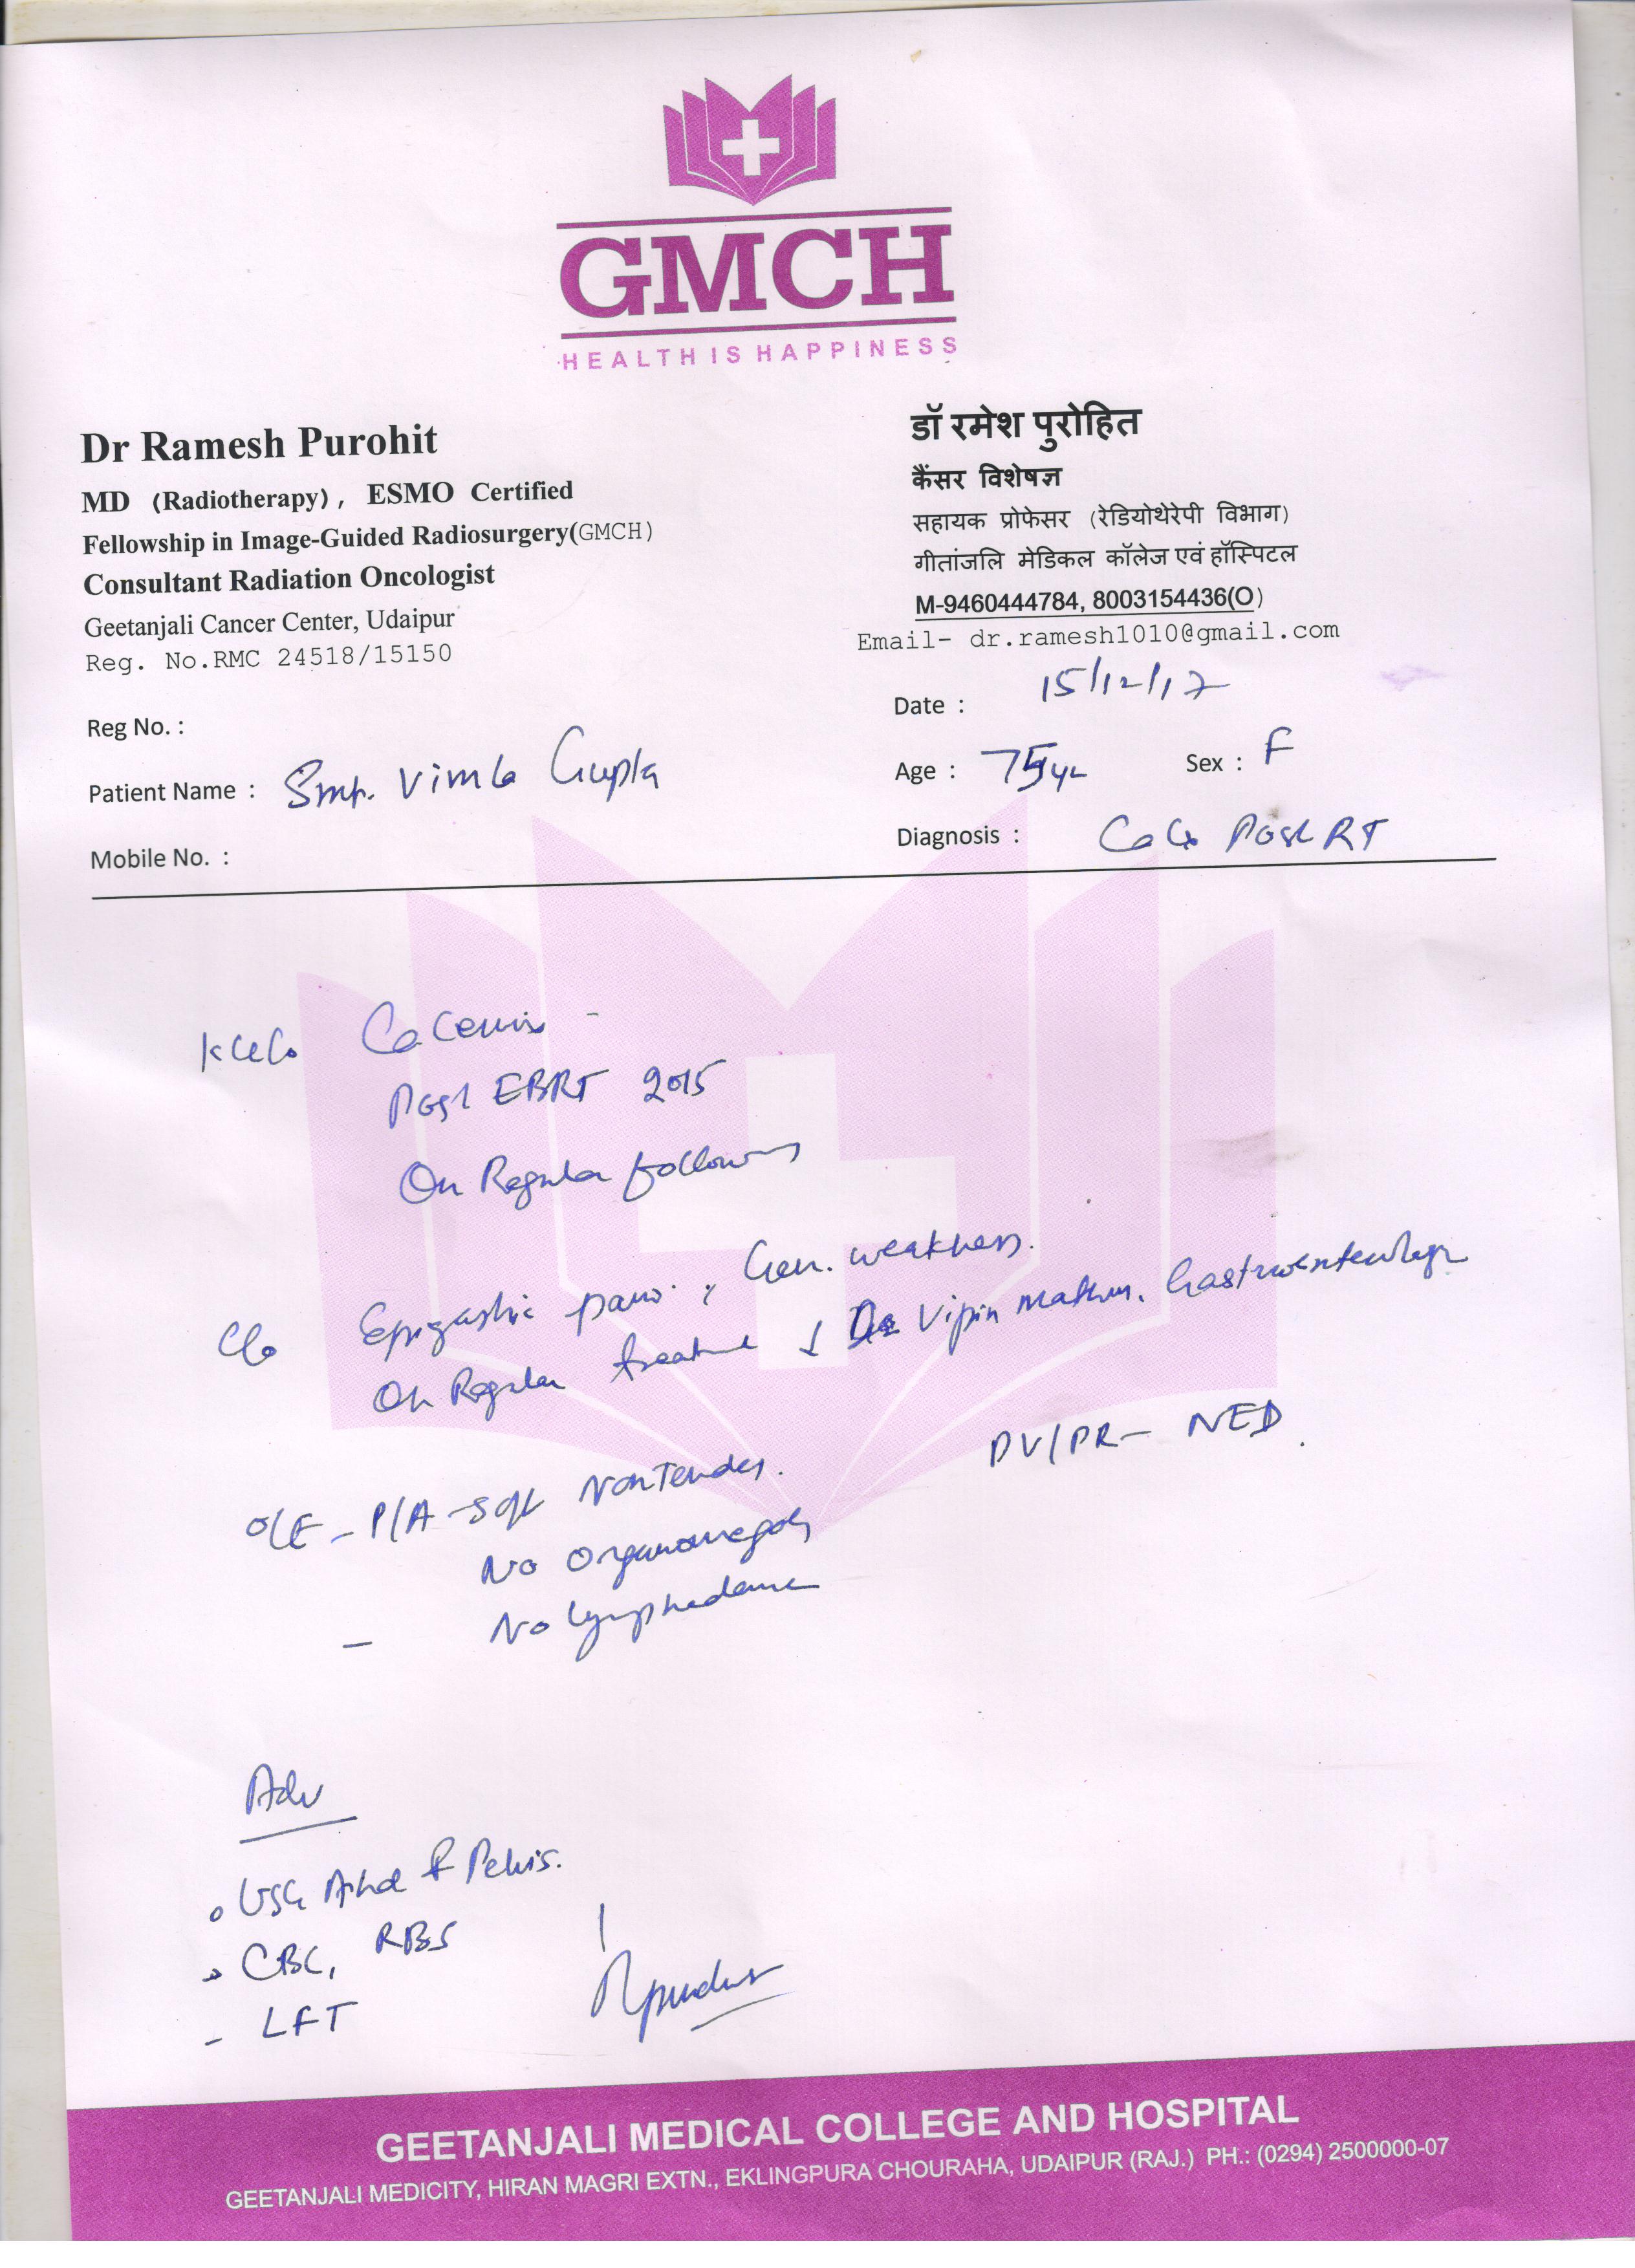 GMCH
HEALTH IS HAPPINESS
Dr Ramesh Purohit
MD (Radiotherapy), ESMO Certified
Fellowship in Image-Guided Radiosurgery(GMCH)
Consultant Radiation Oncologist
Geetanjali Cancer Center, Udaipur
Reg. No.RMC 24518/15150
डॉ रमेश पुरोहित
कैंसर विशेषज्ञ
सहायक प्रोफेसर (रेडियोथेरेपी विभाग)
गीतांजलि मेडिकल कॉलेज एवं हॉस्पिटल
M-9460444784, 8003154436(O)
Email- dr.ramesh1010@gmail.com
Reg No. :
Date : 15/12/17
Patient Name : Smt. Vimla Gupta
Age : 75yr Sex : F
Mobile No. :
Diagnosis : Ca Cx Post RT
Ca Cervix -
Post EBRT 2015
On Regular followup
C/o Epigastric pain, Gen. weakness.
On Regular treatment Dr Vipin Mathur. Gastroenterologist
O/E - P/A - Soft Nontender. PV/PR - NED.
No Organomegaly
- No lymphedema
Adv
USG Abd & Pelvis.
CBC, RBS
- LFT
GEETANJALI MEDICAL COLLEGE AND HOSPITAL
GEETANJALI MEDICITY, HIRAN MAGRI EXTN., EKLINGPURA CHOURAHA, UDAIPUR (RAJ.) PH.: (0294) 2500000-07